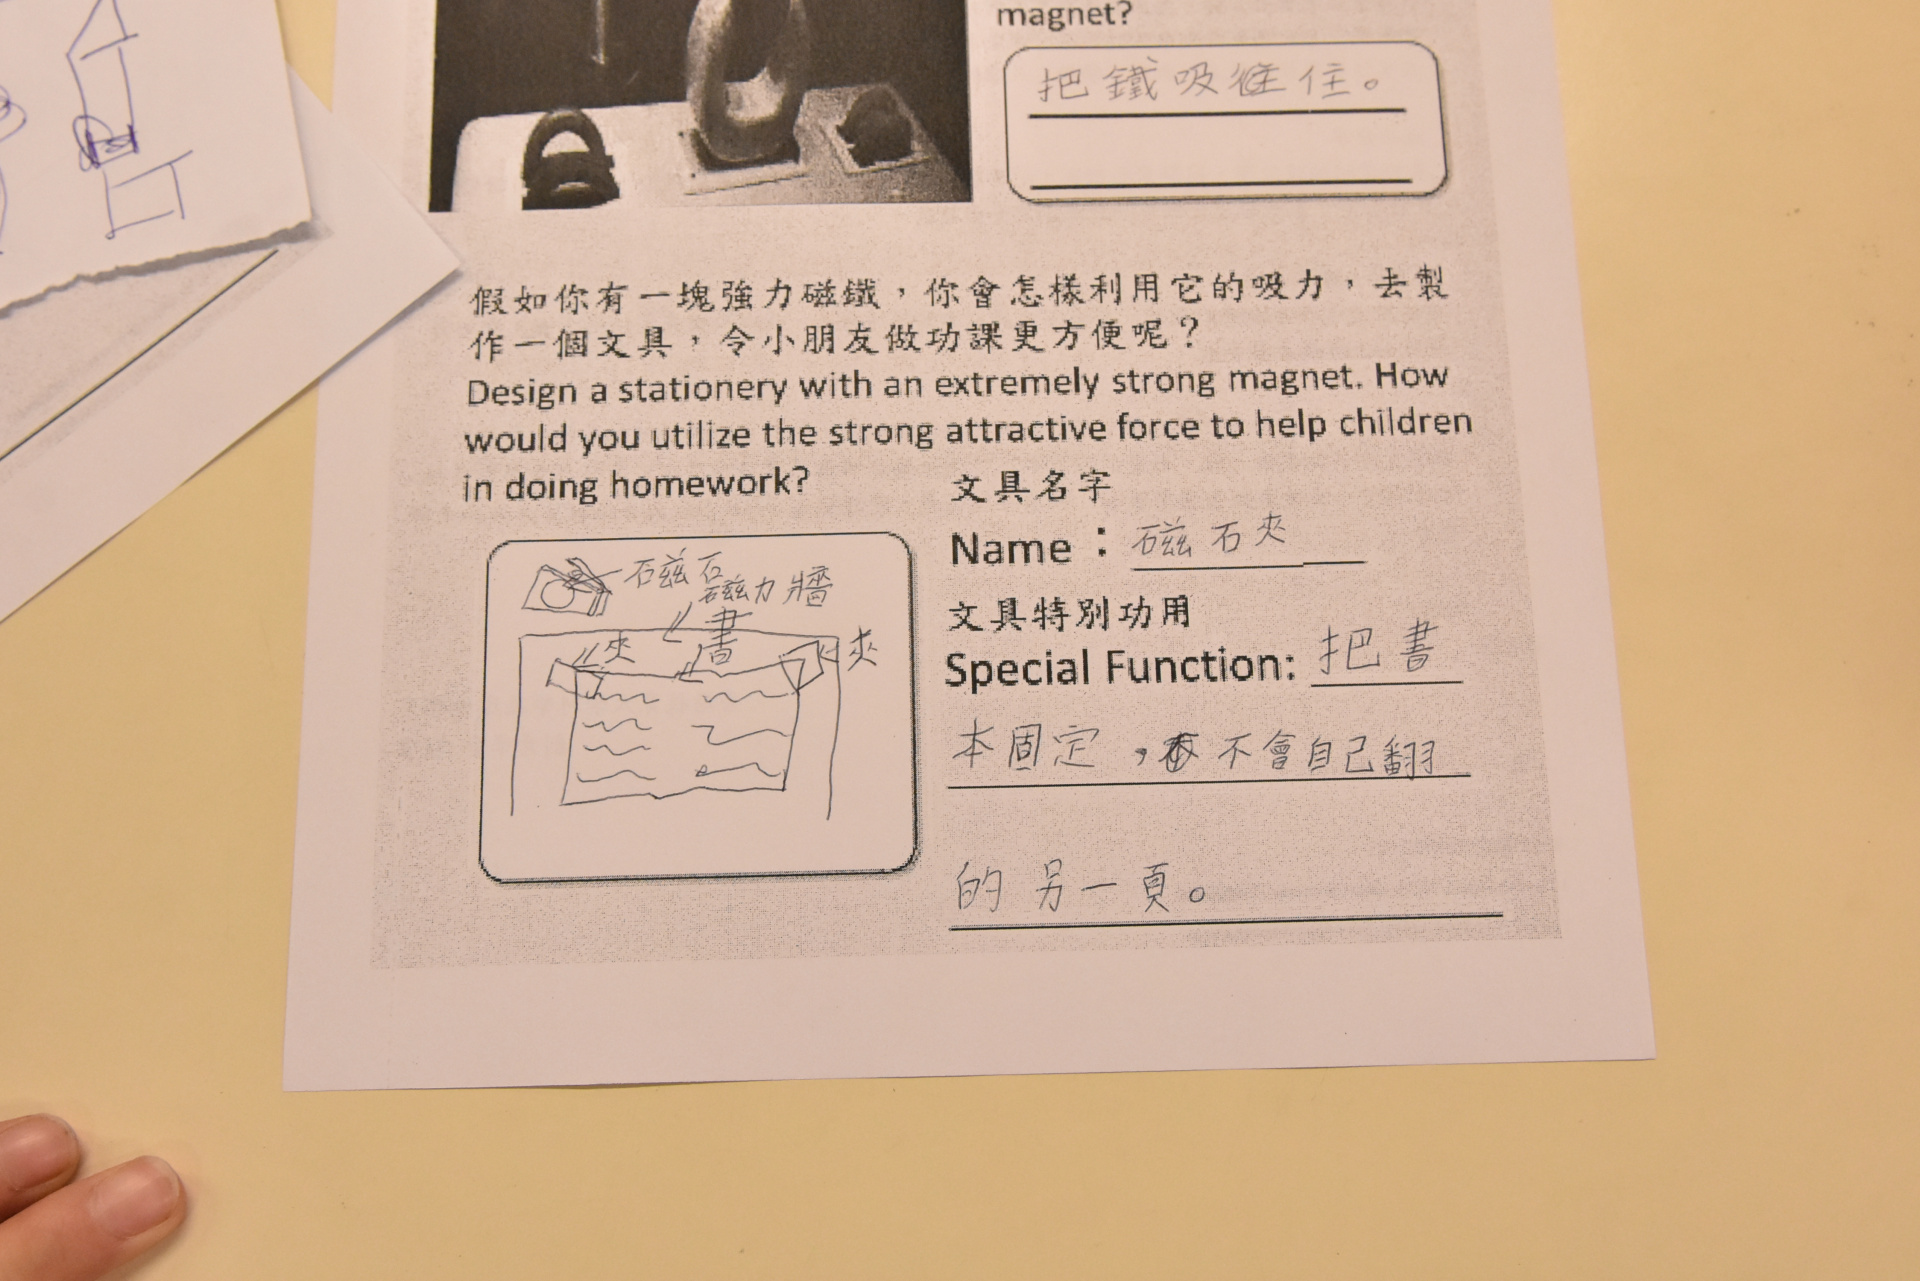 magnet?
把鐵吸住住。
假如你有一塊強力磁鐵，你會怎樣利用它的吸力，去製
作一個文具，令小朋友做功課更方便呢？
Design a stationery with an extremely strong magnet. How
would you utilize the strong attractive force to help children
in doing homework?
文具名字
Name：磁石夾
文具特別功用
Special Function: 把書
本固定，不會自己翻
的另一頁。
磁石
磁力牆
書
夾
夾